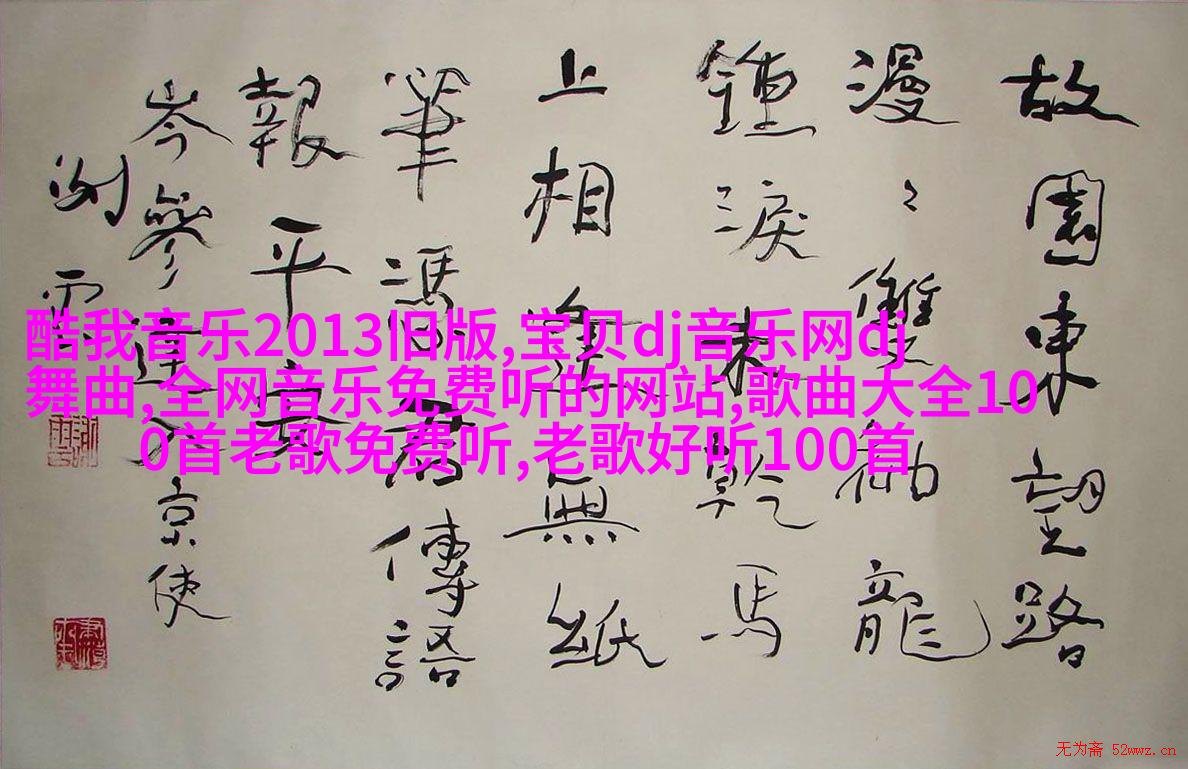 故園東望路
漫〻雙袖龍
鍾淚未乾馬
上相逢無紙
筆馮君傳語
報平安
岑參逢入京使
酷我音乐2013旧版,宝贝dj音乐网dj
舞曲,全网音乐免费听的网站,歌曲大全10
0首老歌免费听,老歌好听100首
无为斋 52wwz.cn